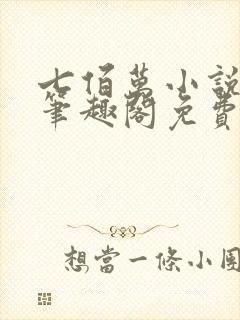 七佰萬小說
筆趣閣免費
想當一條小團